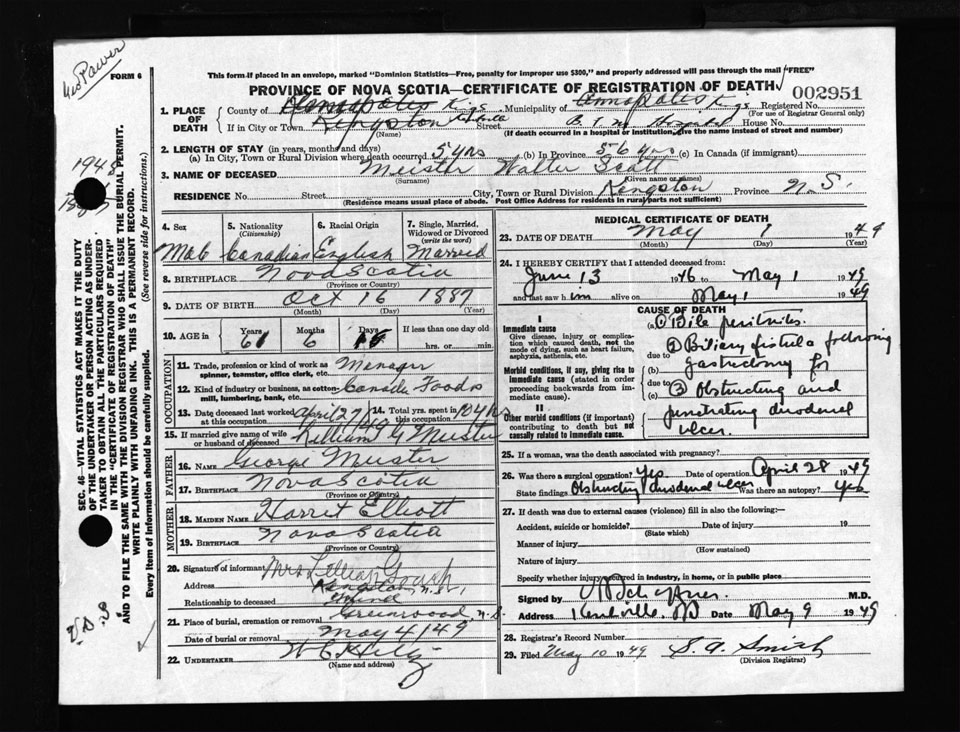 Geo Power
FORM 6
This form if placed in an envelope, marked "Dominion Statistics—Free, penalty for improper use $300," and properly addressed will pass through the mail "FREE"
PROVINCE OF NOVA SCOTIA—CERTIFICATE OF REGISTRATION OF DEATH
002951
1. PLACE OF DEATH
County of Annapolis Kings Municipality of Annapolis Kings Registered No.
(For use of Registrar General only)
If in City or Town Kingston Kentville Street B. F. M. Hospital House No.
(Name) (If death occurred in a hospital or institution, give the name instead of street and number)
2. LENGTH OF STAY (in years, months and days)
(a) In City, Town or Rural Division where death occurred 5 yrs (b) In Province 56 yrs (c) In Canada (if immigrant)
3. NAME OF DECEASED Meister Walter Scott
(Surname) (Given name or names)
RESIDENCE No. Street City, Town or Rural Division Kingston Province N.S.
(Residence means usual place of abode. Post Office Address for residents in rural parts not sufficient)
4. Sex 5. Nationality (Citizenship) 6. Racial Origin 7. Single, Married, Widowed or Divorced (write the word)
Male Canadian English Married
8. BIRTHPLACE Nova Scotia
(Province or Country)
9. DATE OF BIRTH Oct 16 1887
(Month) (Day) (Year)
10. AGE in Years Months Days If less than one day
61 6 hrs. or min.
OCCUPATION
11. Trade, profession or kind of work as spinner, teamster, office clerk, etc. Manager
12. Kind of industry or business, as cotton-mill, lumbering, bank, etc. Canada Foods
13. Date deceased last worked at this occupation April 27/49 14. Total yrs. spent in this occupation 10 4 yrs
15. If married give name of wife or husband of deceased Lillian G Meister
FATHER
16. NAME George Meister
17. BIRTHPLACE Nova Scotia
(Province or Country)
MOTHER
18. MAIDEN NAME Harriet Elliott
19. BIRTHPLACE Nova Scotia
(Province or Country)
20. Signature of informant Mrs. Lillian G
Address Kingston N.S.
Relationship to deceased Friend
21. Place of burial, cremation or removal Greenwood N.S.
Date of burial or removal May 4/49
22. UNDERTAKER W C Hiltz
(Name and address)
MEDICAL CERTIFICATE OF DEATH
23. DATE OF DEATH May 1 1949
(Month) (Day) (Year)
24. I HEREBY CERTIFY that I attended deceased from:
June 13 1946 to May 1 1949
and last saw him alive on May 1 1949
CAUSE OF DEATH
I
Immediate cause
Give disease, injury or complication which caused death, not the mode of dying, such as heart failure, asphyxia, asthenia, etc.
(a) ① Bile peritonitis.
due to
Morbid conditions, if any, giving rise to immediate cause (stated in order proceeding backwards from immediate cause).
(b) ② Biliary fistula following gastrectomy for
due to
(c) ③ Obstructing and penetrating duodenal ulcer.
II
Other morbid conditions (if important) contributing to death but not causally related to immediate cause.
25. If a woman, was the death associated with pregnancy?
26. Was there a surgical operation? Yes Date of operation April 28 1949
State findings Obstructing duodenal ulcer Was there an autopsy? Yes
27. If death was due to external causes (violence) fill in also the following:—
Accident, suicide or homicide? Date of injury 19
(State which)
Manner of injury
(How sustained)
Nature of injury
Specify whether injury occurred in industry, in home, or in public place
Signed by M.D.
Address Kentville, NS Date May 9 1949
28. Registrar's Record Number
29. Filed May 10 1949 S. A. Smith
(Division Registrar)
SEC. 46—VITAL STATISTICS ACT MAKES IT THE DUTY
OF THE UNDERTAKER OR PERSON ACTING AS UNDER-
TAKER TO OBTAIN ALL THE PARTICULARS REQUIRED
IN THE "CERTIFICATE OF REGISTRATION OF DEATH"
AND TO FILE THE SAME WITH THE DIVISION REGISTRAR WHO SHALL ISSUE THE BURIAL PERMIT.
WRITE PLAINLY WITH UNFADING INK. THIS IS A PERMANENT RECORD.
Every item of information should be carefully supplied. (See reverse side for instructions.)
1948